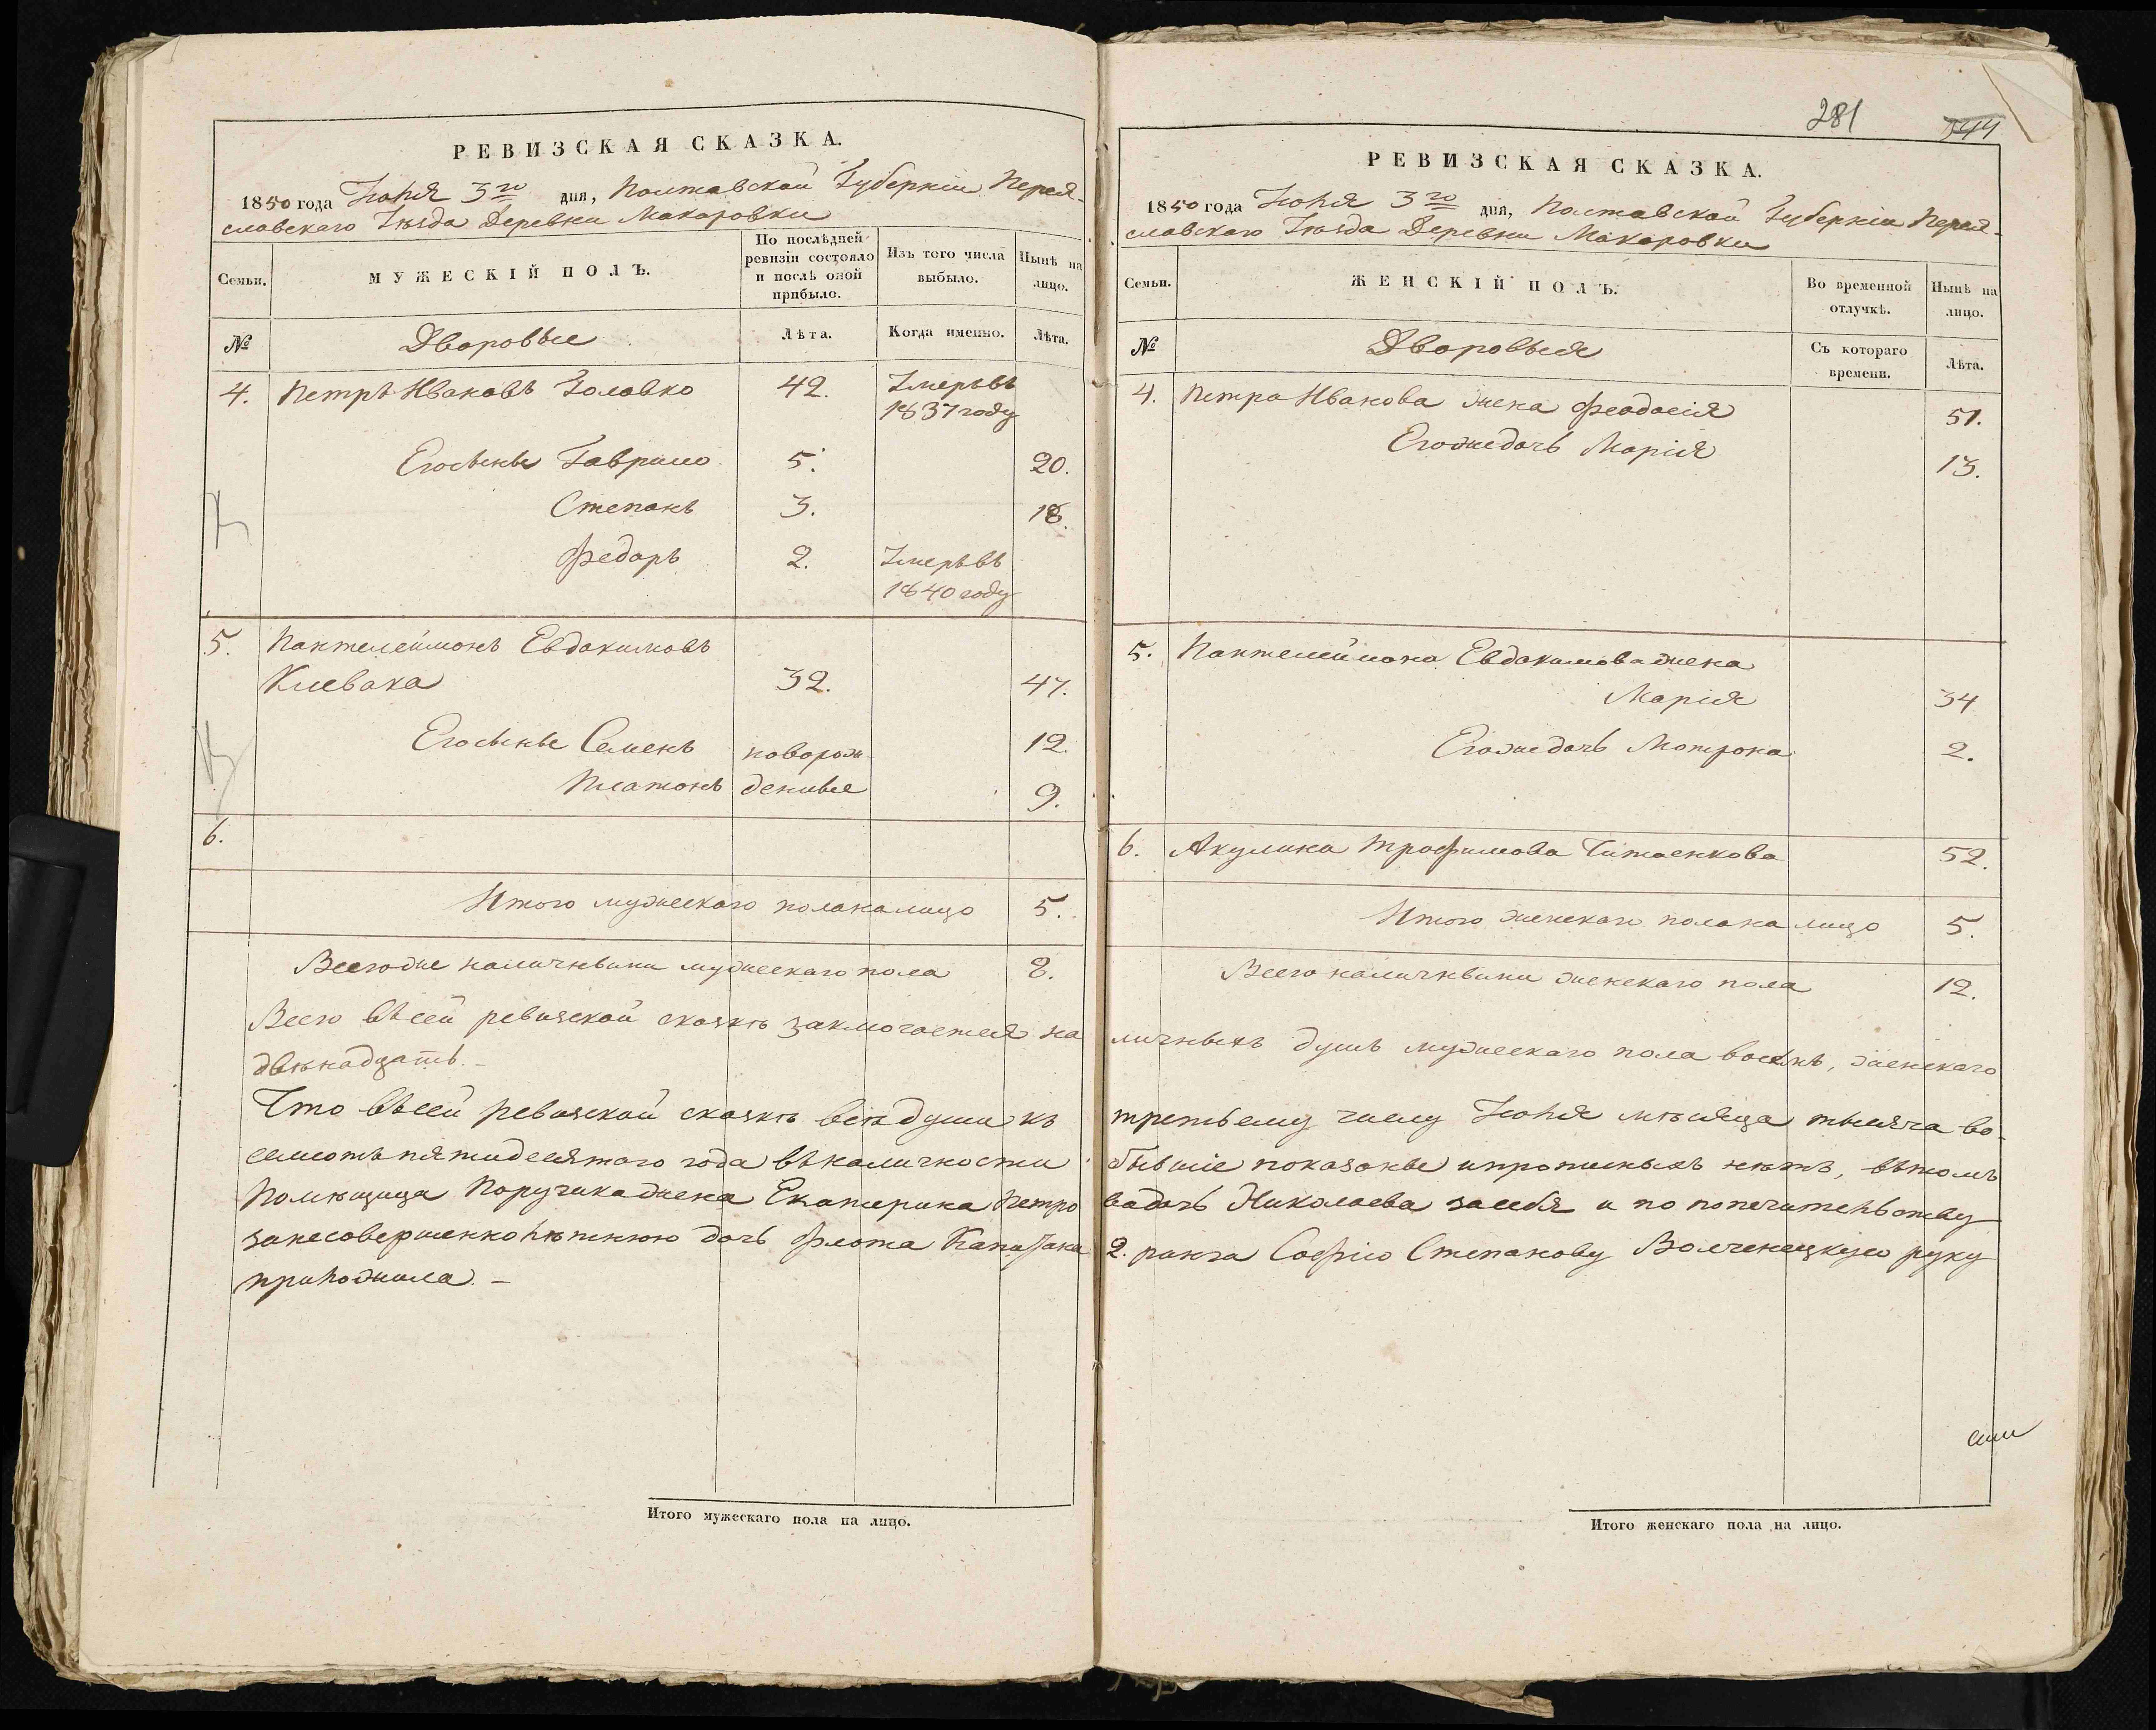 РЕВИЗСКАЯ СКАЗКА.
1850 года Іюня 3го дня, Полтавской Губерніи Перея-
славскаго Уѣзда Деревни Макаровки
Семьи.
МУЖЕСКІЙ ПОЛЪ.
По послѣдней ревизіи состояло и послѣ оной прибыло.
Изъ того числа выбыло.
Нынѣ на лицо.
№
Дворовые
Лѣта.
Когда именно.
Лѣта.
4. Петръ Ивановъ Головко 42. Умеръ въ
1837 году
Его сыны Гаврило 5. 20.
Степанъ 3. 18.
Федоръ 2. Умеръ въ
1840 году
5. Пантелеймонъ Евдокимовъ
Клевака 32. 47.
Его сыны Семенъ новорож- 12.
Платонъ денные 9.
6.
Итого мужескаго пола на лицо 5.
Всего же наличными мужескаго пола 8.
Всего въ сей ревизской сказкѣ заключается на
двѣнадцать. –
Что въ сей ревизской сказкѣ всѣ души къ
семсотъ пятидесятого года въ наличности
Помѣщица Поручика жена Екатерина Петро
за несовершеннолѣтнюю дочь Флота Капитана
приложила. –
Итого мужескаго пола на лицо.
281
544
РЕВИЗСКАЯ СКАЗКА.
1850 года Іюня 3го дня, Полтавской Губерніи Перея-
славскаго Уѣзда Деревни Макаровки
Семьи.
ЖЕНСКІЙ ПОЛЪ.
Во временной отлучкѣ.
Нынѣ на лицо.
№
Дворовыя
Съ котораго времени.
Лѣта.
4. Петра Иванова жена Феодосія 51.
Его же дочь Марія 13.
5. Пантелеймона Евдокимова жена
Марія 34
Его же дочь Мотрона 2.
6. Акулина Трофимова Титаенкова 52.
Итого женскаго пола на лицо 5.
Всего наличными женскаго пола 12.
личныхъ душъ мужескаго пола восемь, женскаго
третьему числу Іюня мѣсяца тысяча во-
бывшіе показаны и прописныхъ нѣтъ, въ томъ
ва дочь Николаева за себя и по попечительству
2. ранга Софію Степанову Волченецкую руку
Итого женскаго пола на лицо.